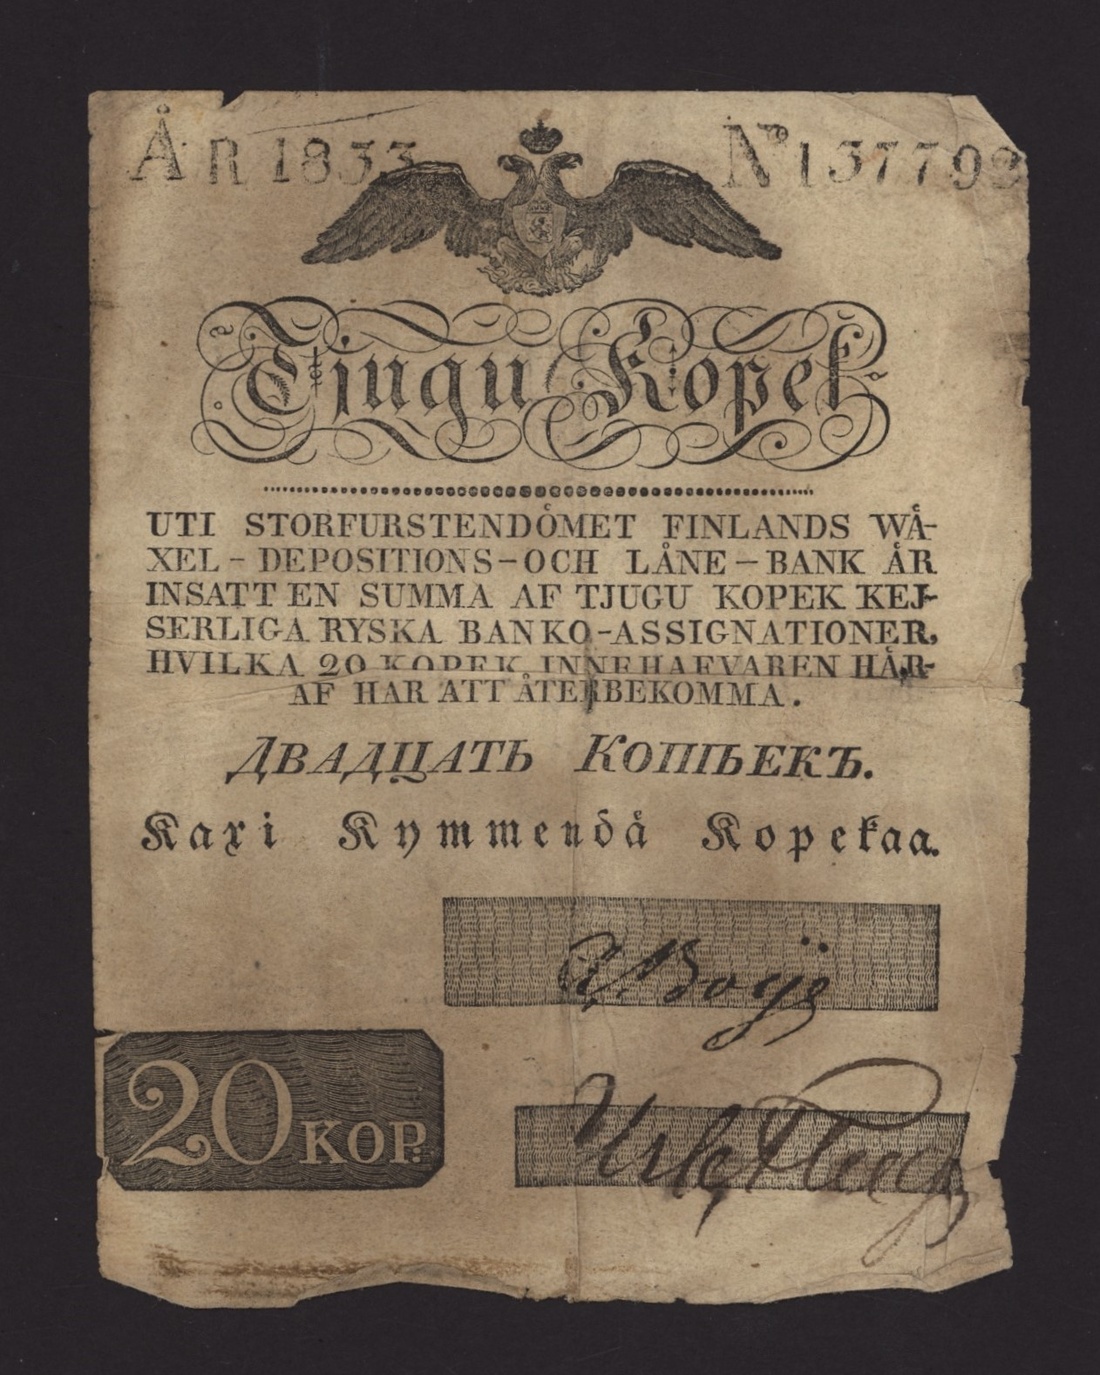 ÅR 1833 No 137792
Tjugu Kopek
UTI STORFURSTENDÖMET FINLANDS WÄ-
XEL-DEPOSITIONS-OCH LÅNE-BANK ÄR
INSATT EN SUMMA AF TJUGU KOPEK KEJ-
SERLIGA RYSKA BANKO-ASSIGNATIONER,
HVILKA 20 KOPEK INNEHAFVAREN HÄR-
AF HAR ATT ÅTERBEKOMMA.
ДВАДЦАТЬ КОПѢЕКЪ.
Kaxi Kymmendä Kopekaa.
Boije
20 KOP.